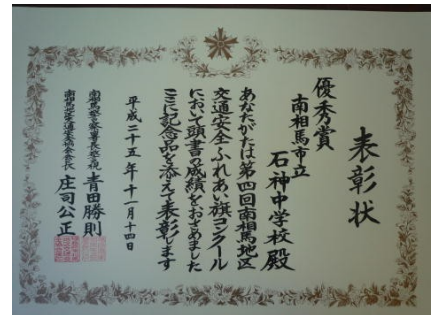 表彰状
優秀賞
南相馬市立
石神中学校殿
あなたがたは第四回南相馬地区
交通安全ふれあい旗コンクール
において頭書の成績をおさめました
ここに記念品を添えて表彰します
平成二十五年十一月十四日
南相馬警察署長警視 青田勝則
南相馬地区交通安全協会会長 庄司公正